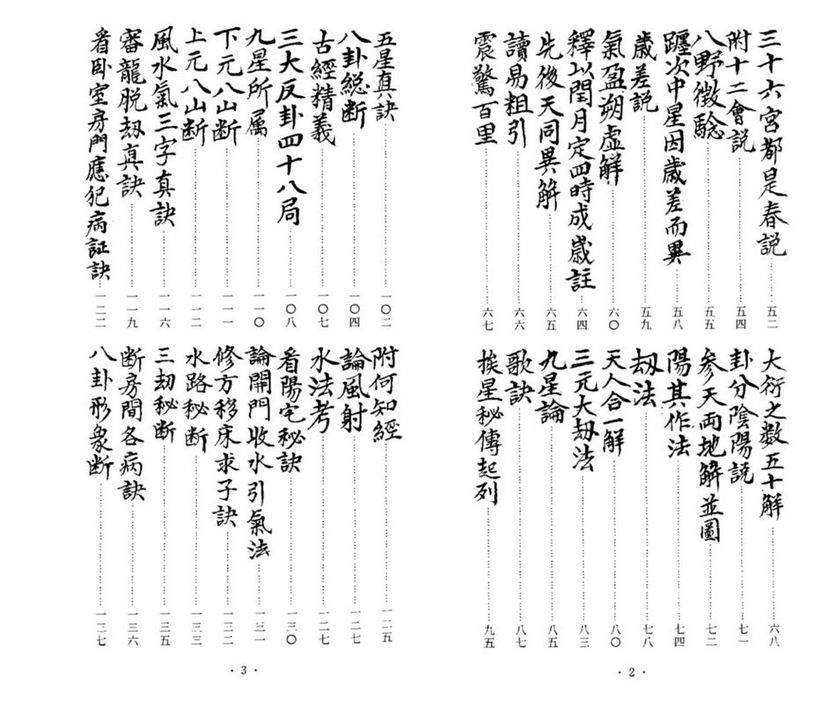 三十六宮都是春説 五二
附十二會説 五四
八野徵驗 五五
躔次中星因歲差而異 五八
歲差説 五九
氣盈朔虛解 六〇
釋以閏月定四時成歲註 六四
先後天同異解 六五
讀易粗引 六六
震驚百里 六七
大衍之数五十解 六八
卦分陰陽説 七一
參天両地解並圖 七二
陽其作法 七四
刼法 七八
天人合一解 八〇
三元大刼法 八三
九星論 八五
歌訣 八七
挨星秘傳起列 九五
·2·
五星真訣 一〇二
八卦総断 一〇四
古經精義 一〇七
三大反卦四十八局 一〇八
九星所属 一一〇
下元八山断 一一一
上元八山断 一一二
風水氣三字真訣 一一六
審龍脱刼真訣 一一九
看卧室房門應犯病証訣 一二二
附何知經 一二五
論風射 一二七
水法考 一二七
看陽宅秘訣 一三〇
論開門收水引氣法 一三一
修方移床求子訣 一三二
水路秘断 一三三
三刼秘断 一三五
断房間各病訣 一三六
八卦形象断 一三七
·3·